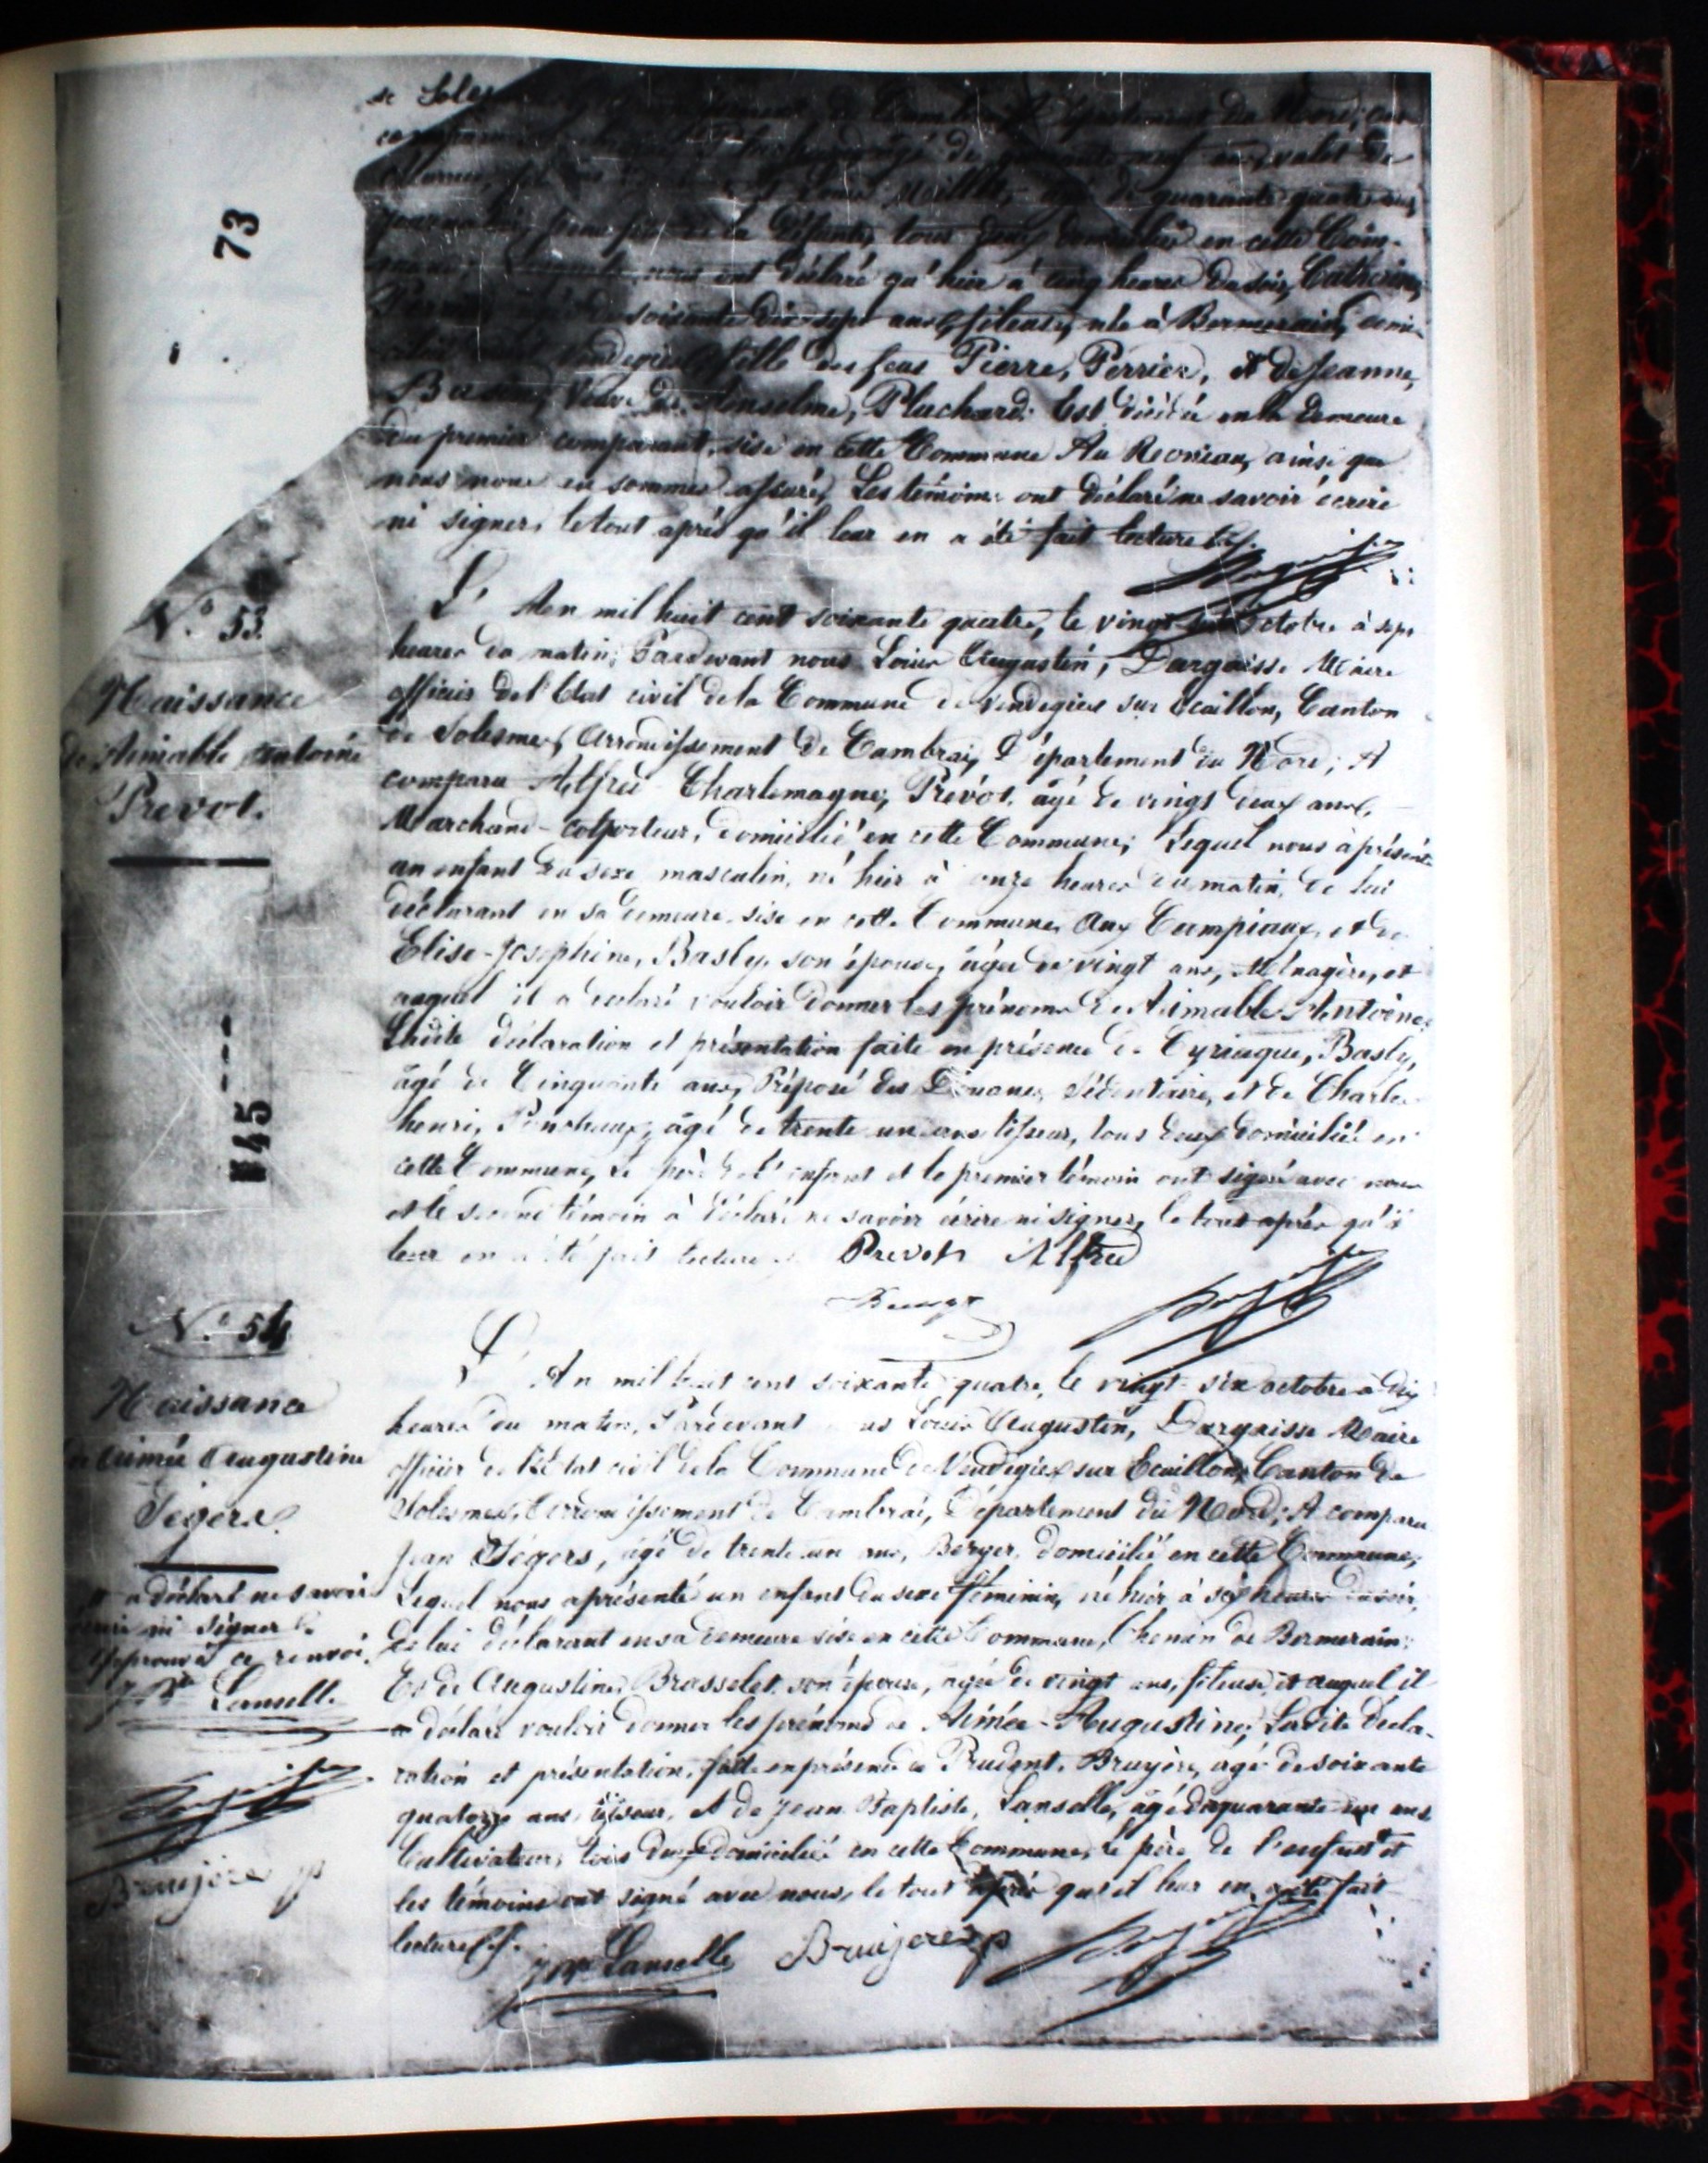 73
de Soles du Nord;
âgé de valet de
de quarante quatre ans,
la défunte, tous deux domiciliés en cette Com-
nous ont déclaré qu'hier à cinq heures du soir, Catherine,
soixante dix-sept ans, fileuse, née à Bermerain, domi-
fille des feus Pierre, Perrier, et de Jeanne,
Veuve de Anselme, Pluchard. Est décédée en la demeure
du premier comparant, sise en cette Commune Au ainsi que
nous nous en sommes assuré, Les témoins ont déclaré ne savoir écrire
ni signer, le tout après qu'il leur en a été fait lecture
N.° 53.
Naissance
de Aimable Antoine
Prevot.
L'An mil huit cent soixante quatre, le vingt octobre à sept
heures du matin; Pardevant nous Louis Augustin, Dargaisse Maire
officier de l'Etat civil de la Commune de Vendegies sur Ecaillon, Canton
de Solesmes, Arrondissement de Cambrai, Département du Nord; A
comparu Alfred Charlemagne, Prévot, âgé de vingt deux ans,
Marchand-colporteur, domicilié en cette Commune; Lequel nous à présenté
un enfant du sexe masculin, né hier à onze heures du matin, de lui
déclarant en sa demeure sise en cette Commune, Aux Campiaux, et de
Elise-Josephine, Basly, son épouse, âgée de vingt ans, Ménagère, et
auquel il a déclaré vouloir donner les prénoms de Aimable Antoine,
Ladite déclaration et présentation faite en présence de Cyriaque, Basly,
âgé de Cinquante ans, Préposé des Douanes, sédentaire, et de Charles
henri, âgé de trente un ans tisseur, tous deux domicilié en
cette Commune, Le père de l'enfant et le premier témoin ont signé avec nous
et le second témoin à déclaré ne savoir écrire ni signer, le tout après qu'il
leur en a été fait lecture Prevot Alfred
145
N.° 54
Naissance
de Aimée Augustine
Segers.
L'An mil huit cent soixante quatre, le vingt six octobre à dix
heures du matin, Pardevant nous Louis Augustin, Dargaisse Maire
officier de l'Etat civil de la Commune de Vendegies sur Ecaillon, Canton de
Solesmes, Arrondissement de Cambrai, Département du Nord; A comparu
Jean Ségers, âgé de trente un ans, Berger, domicilié en cette Commune;
Lequel nous a présenté un enfant du sexe féminin, né hier, à six heures du soir,
de lui déclarant en sa demeure sise en cette Commune, Chemin de Bermerain;
Et de Augustine, Brasselet, son épouse, agée de vingt ans, fileuse, et auquel il
a déclaré vouloir donner les prénoms de Aimée-Augustine; Ladite décla-
ration et présentation, faite en présence de Prudent, Bruyère, agé de soixante
quatorze ans, tisseur, et de Jean Baptiste, Lanselle, âgé de quarante ans
Cultivateur, tous deux domicilié en cette Commune, Le père de l'enfant et
les témoins ont signé avec nous, le tout après qu'il leur en a été fait
lecture
JBte Lanselle Bruyere p
a déclaré ne savoir
écrire ni signer
Approuvé ce renvoi.
JBte Lanselle
Bruyère p